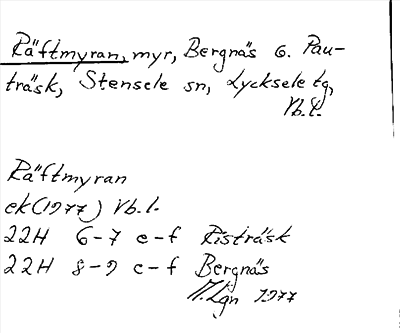 Räftmyran, myr, Bergnäs o. Pau-
träsk, Stensele sn, Lycksele tg,
Vb. l.
Räftmyran
ek (1977) Vb. l.
22H 6-7 e-f Risträsk
22H 8-9 c-f Bergnäs
M. Lgn 1977